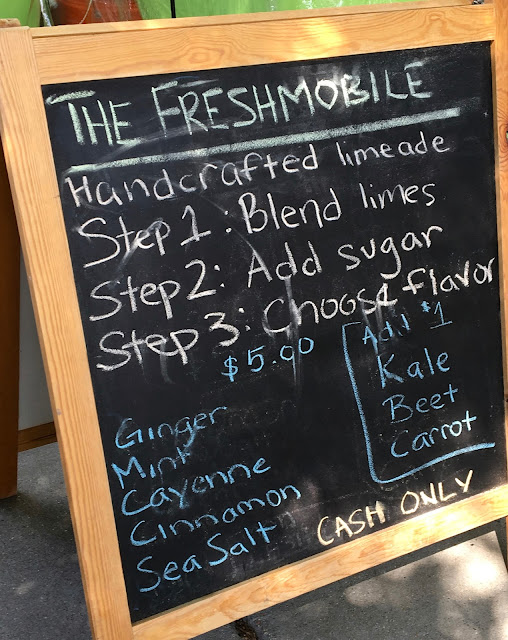 THE FRESHMOBILE
Handcrafted limeade
Step 1: Blend limes
Step 2: Add sugar
Step 3: Choose flavor
$5.00
Ginger
Mint
Cayenne
Cinnamon
Sea Salt
Add $1
Kale
Beet
Carrot
CASH ONLY